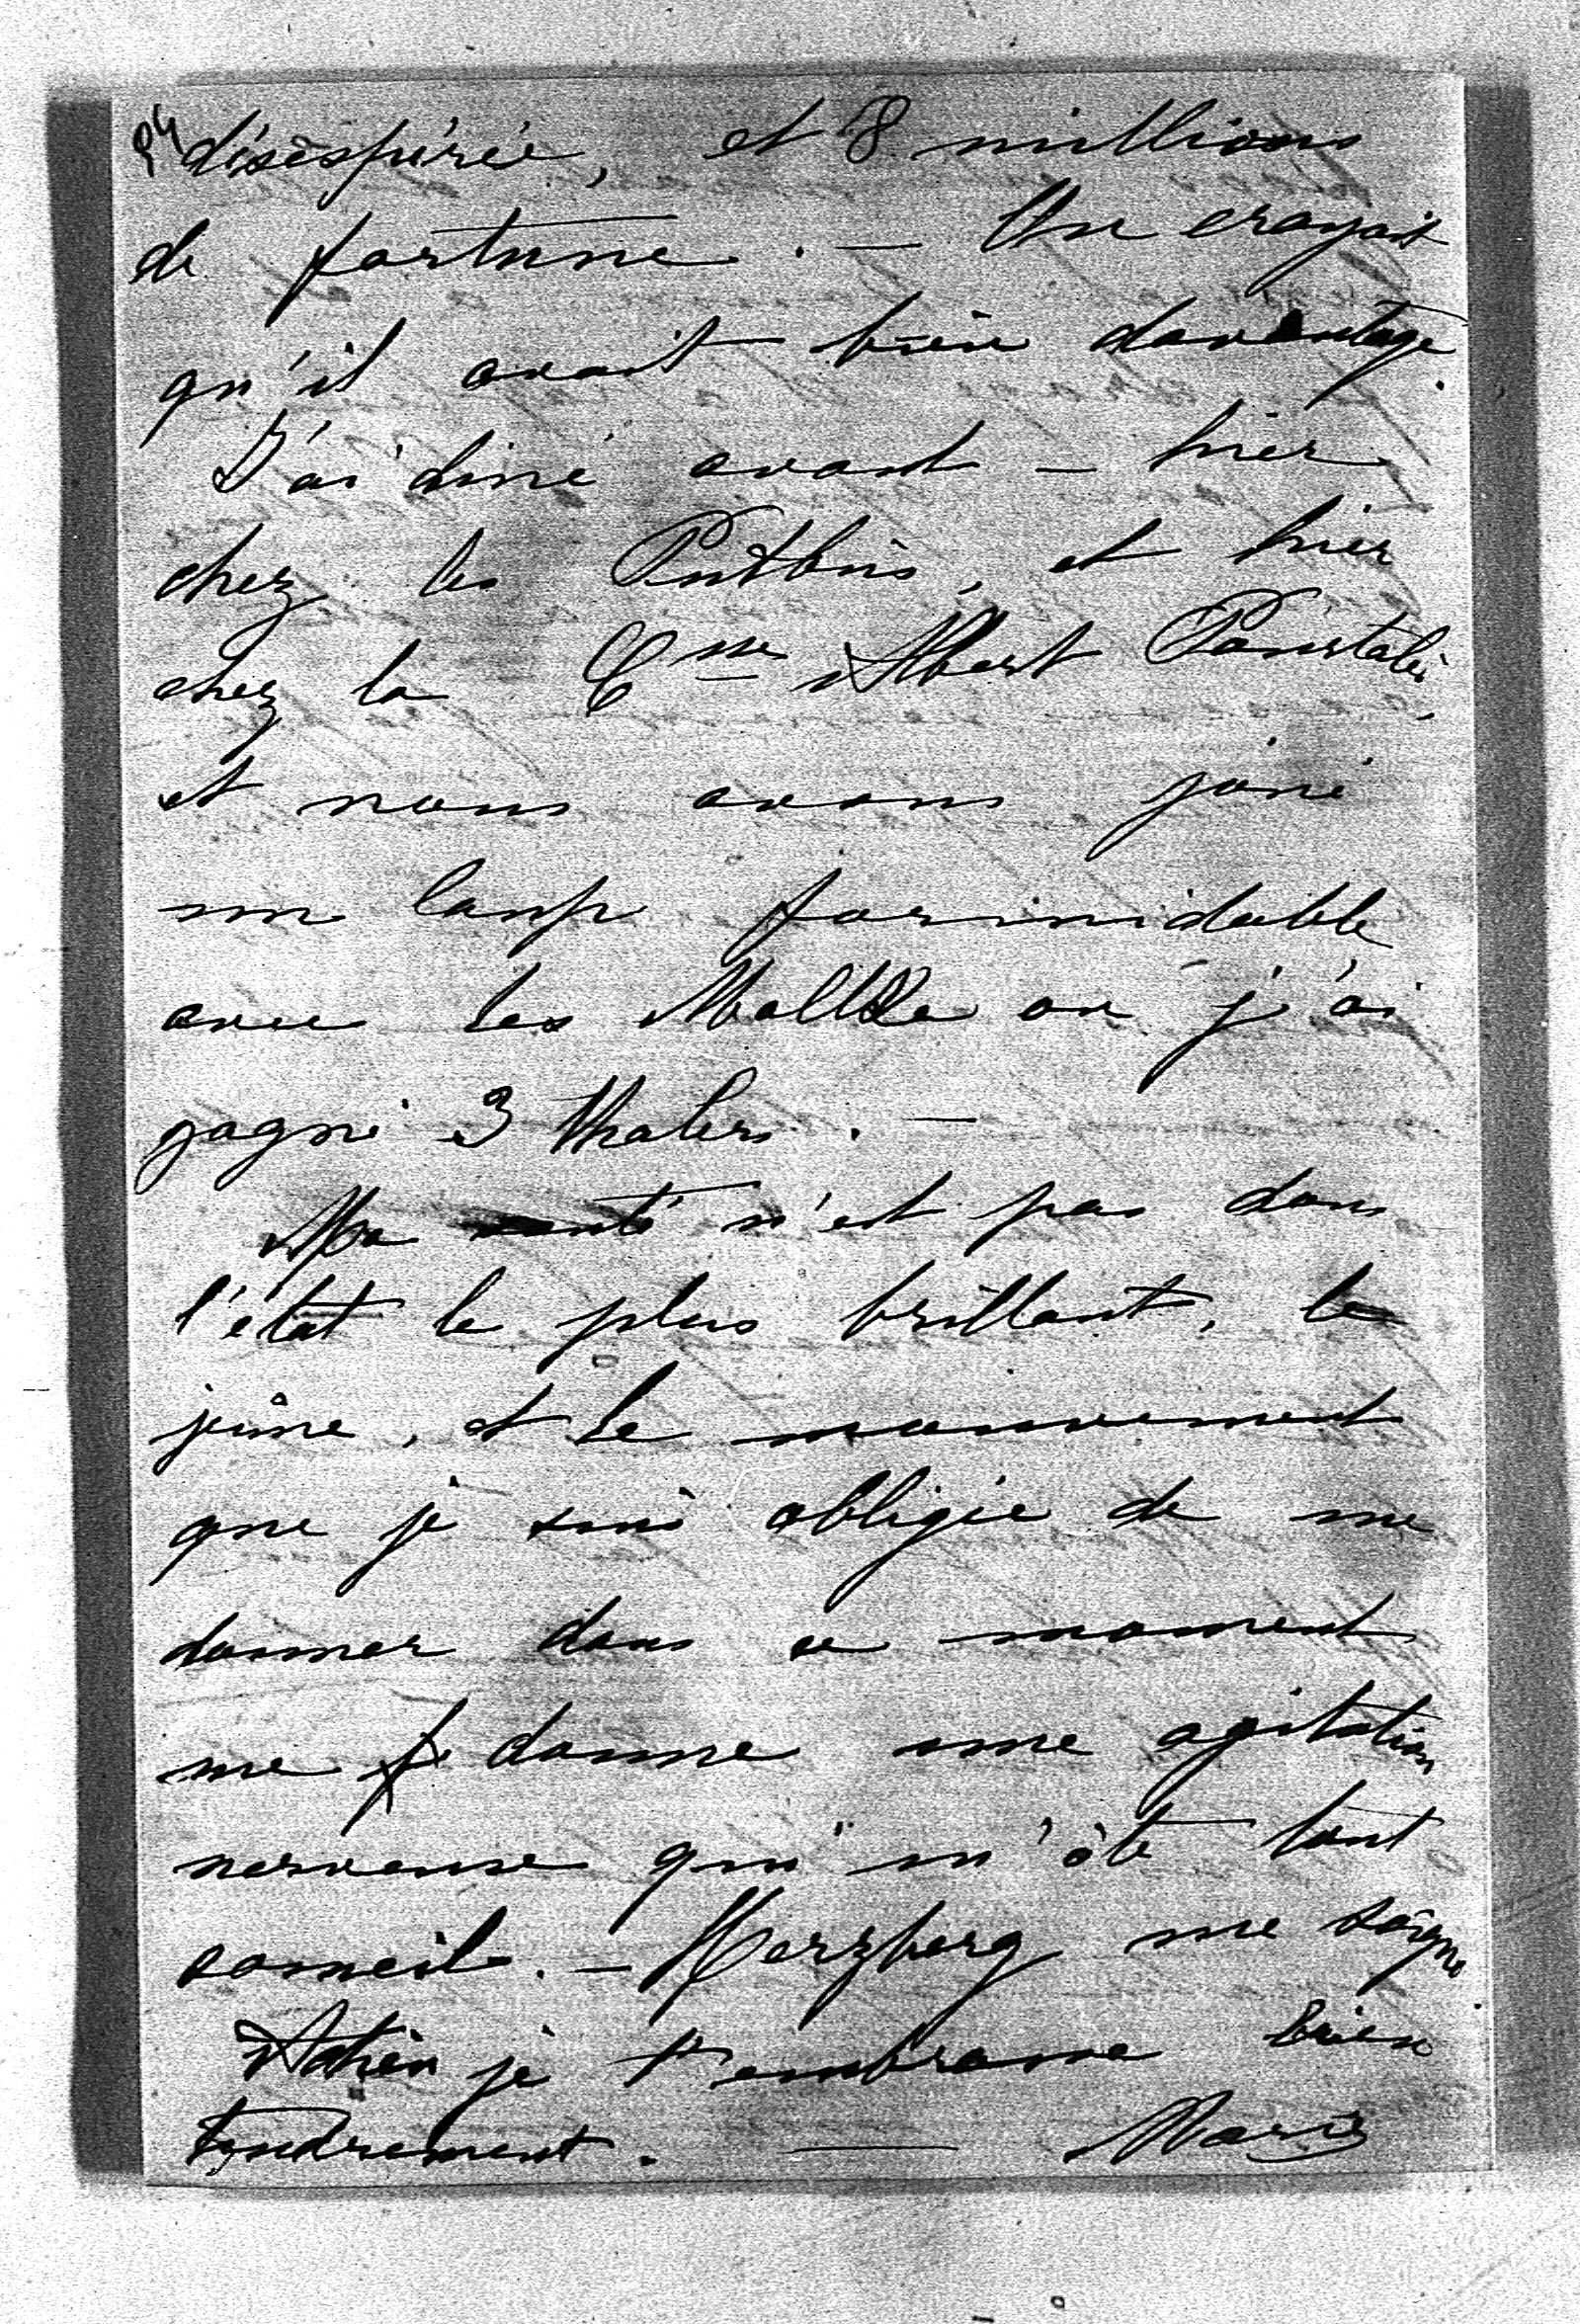 94 désespérée, et 8 millions
de fortune. — On croyait
qu'il avait bien davantage.
J'ai diné avant-hier
chez les Putbus, et hier
chez la Ctsse Albert Pourtalès,
et nous avons joué
un loup formidable
avec les Moltke ou j'ai
gagné 3 thalers. —
Ma santé n'est pas dans
l'état le plus brillant, le
jeûne, et le mouvement
que je suis obligée de me
donner dans ce moment
me donne une agitation
nerveuse qui m'ôte tout
someil. — Herzberg me soigne.
Adieu je t'embrasse bien
tendrement. — Marie